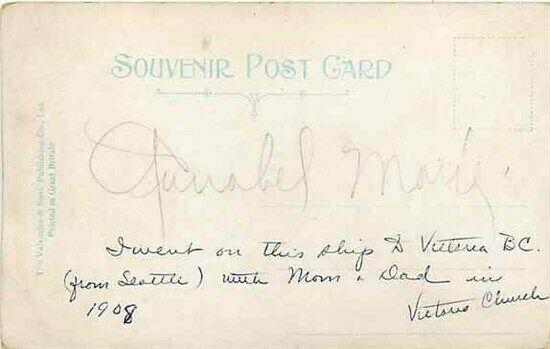 SOUVENIR POST CARD
The Valentine & Sons Publishing Co., Ltd.
Printed in Great Britain
Annabel Marie.
I went on this ship to Victoria BC.
(from Seattle) with Mom & Dad in
1908
Victoria Church